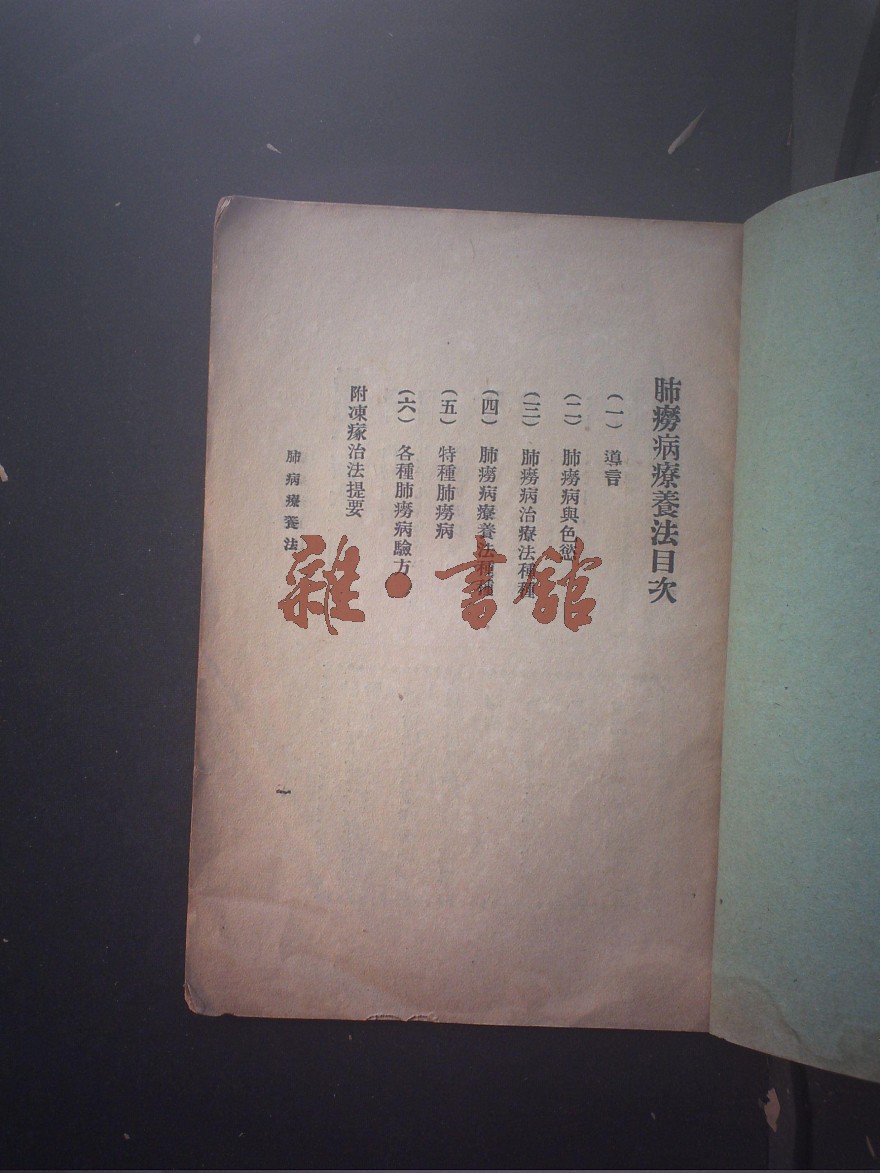 肺癆病療養法目次
(一) 導言
(二) 肺癆病與色慾
(三) 肺癆病治療法種種
(四) 肺癆病療養法種種
(五) 特種肺癆病
(六) 各種肺癆病驗方
附凍瘃治法提要
肺病療養法
一
雜·書館